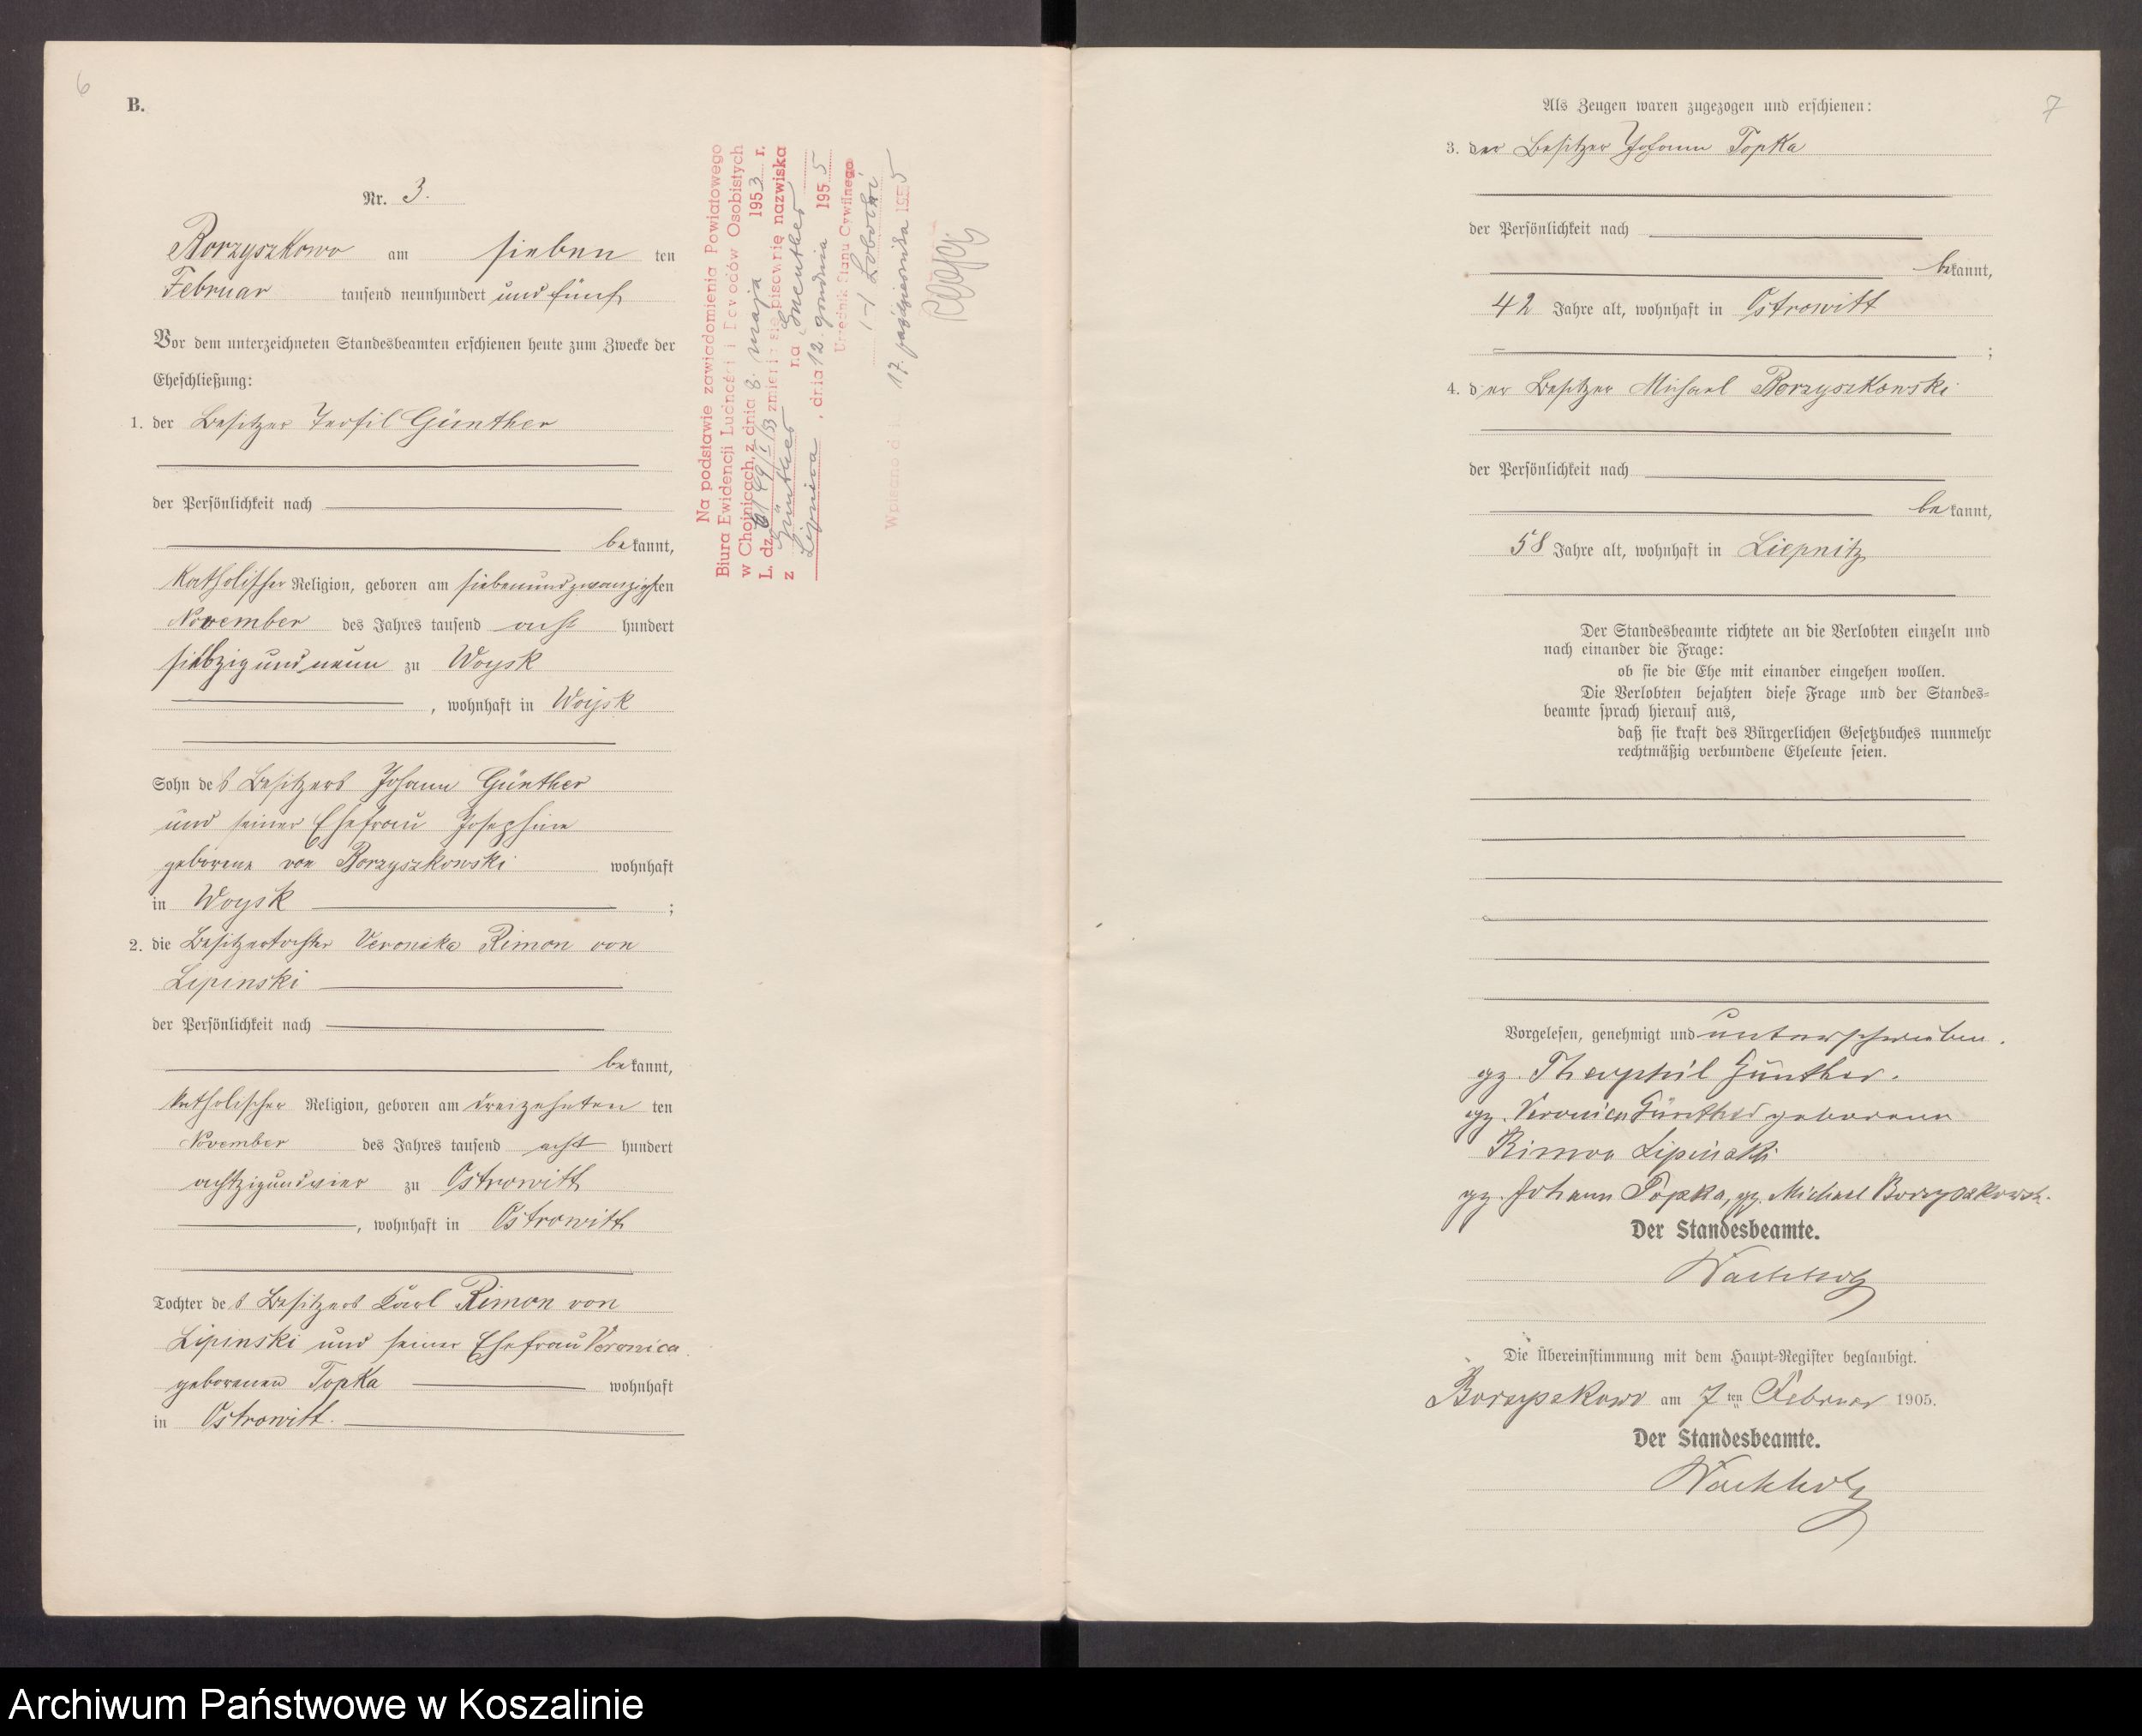 6
B.
Nr. 3.
Borzyszkowo am sieben ten
Februar tausend neunhundert und fünf
Vor dem unterzeichneten Standesbeamten erschienen heute zum Zwecke der
Eheschließung:
1. der Besitzer Teofil Günther
der Persönlichkeit nach
bekannt,
katholischer Religion, geboren am siebenundzwanzigsten
November des Jahres tausend acht hundert
siebzig und neun zu Woysk
, wohnhaft in Woysk
Sohn des Besitzers Johann Günther
und seiner Ehefrau Josephine
geborene von Borzyszkowski wohnhaft
in Woysk ;
2. die Besitzertochter Veronika Rimon von
Lipinski
der Persönlichkeit nach
bekannt,
katholischer Religion, geboren am dreizehnten ten
November des Jahres tausend acht hundert
achtzigundvier zu Ostrowitt
, wohnhaft in Ostrowitt
Tochter des Besitzers Karl Rimon von
Lipinski und seiner Ehefrau Veronica
geborenen Topka wohnhaft
in Ostrowitt.
Na podstawie zawiadomienia Powiatowego
Biura Ewidencji Ludności i Dowodów Osobistych
w Chojnicach, z dnia 8. maja 1953 r.
L. dz. zmienia się pisownię nazwiska
z Günther na Gienther
Lipnica, dnia 12. grudnia 1955
Urzędnik Stanu Cywilnego
17. października 1955
7
Als Zeugen waren zugezogen und erschienen:
3. der Besitzer Johann Topka
der Persönlichkeit nach
bekannt,
42 Jahre alt, wohnhaft in Ostrowitt
;
4. der Besitzer Michael Borzyszkowski
der Persönlichkeit nach
bekannt,
58 Jahre alt, wohnhaft in Liepnitz
Der Standesbeamte richtete an die Verlobten einzeln und
nach einander die Frage:
ob sie die Ehe mit einander eingehen wollen.
Die Verlobten bejahten diese Frage und der Standes-
beamte sprach hierauf aus,
daß sie kraft des Bürgerlichen Gesetzbuches nunmehr
rechtmäßig verbundene Eheleute seien.
Vorgelesen, genehmigt und unterschrieben.
gz. Theophil Günther.
gz. Veronica Günther geborene
Rimon Lipinski
gz. Johann Topka, gz. Michael Borzyszkowski.
Der Standesbeamte.
Wachholz
Die Übereinstimmung mit dem Haupt-Register beglaubigt.
Borzyszkowo am 7 ten Februar 1905.
Der Standesbeamte.
Wachholz
Archiwum Państwowe w Koszalinie